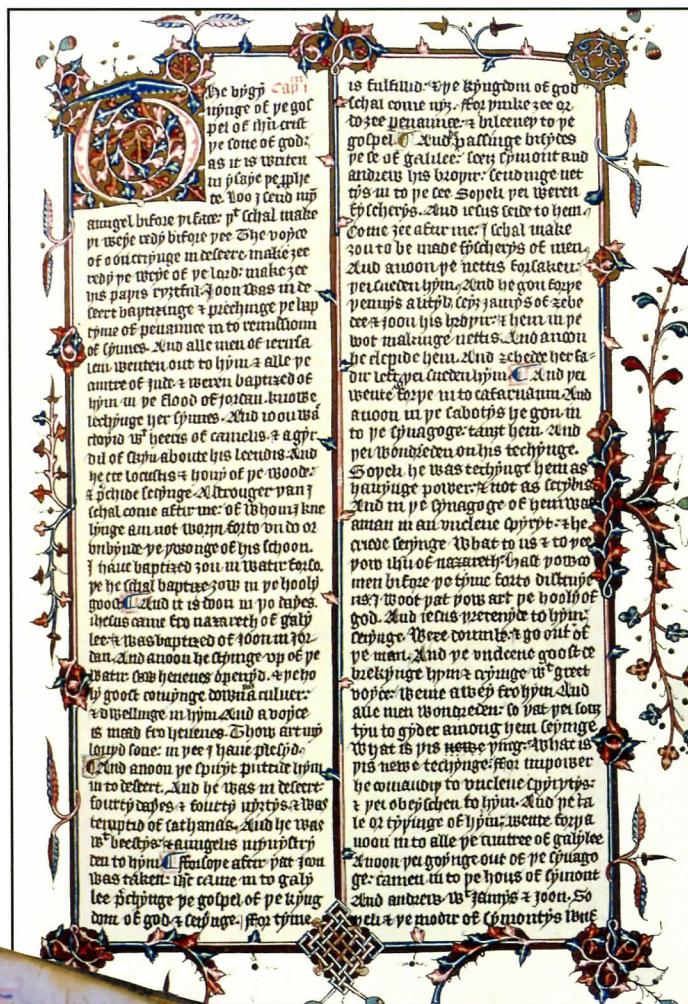 þe bygỹ Capᵐ i
nynge of þe gos
pel of ihū crist
þe sone of god:
as it is writen
in ysaye þe ꝓphe
te. Loo j send myn
aungel bifore þi face: þᵗ schal make
þi weye redy bifore þee The voyce
of oon cryinge in deseert make ȝee
redy þe weye of þe lord: make ȝee
his paþis ryȝtful: Joon was in de
seert baptisinge & prechinge þe bap
tyme of penaunce in to remissioun
of synnes. And alle men of ierusa
lem wenten out to hym & alle þe
cuntre of Jude & weren baptized of
hym in þe flood of jordan. knowe
lechynge her synnes. And ioon was
cloþid wᵗ heeris of camelis. & a gyr
dil of skyn aboute his leendis: And
he eet locustis & hony of þe woode:
& p̄chide seiynge A strouger þan j
schal come aftir me: of whom j kne
lynge am not worþi forto vndo or
vnbynde þe þwonge of his schoon.
J haue baptized ȝou in watir forso
þe he schal baptize ȝow in þe hooly
goost And it is doon in þo dayes.
ihesus came fro nazareth of galy
lee & was baptized of joon in Jor
dan. And anoon he stiynge vp of þe
watir saw heuenes openyd. & þe ho
ly goost comynge down as a culuer:
& dwellinge in hym And a voyce
is maad fro heuenes. Thow art my
louyd sone: in þee j haue plesyd.
And anoon þe spiryt puttide hym
in to desert. And he was in deseert
fourty dayes & fourty nyȝtys & was
temptid of sathanas. And he was
wᵗ beestys: & aungelis mynystry
den to hym Forsoþe aftir þat joon
was taken: ihc came in to galy
lee p̄chynge þe gospel of þe kyng
dom of god & seiynge. ffor tyme
is fulfillid: & þe kyngdom of god
schal come nyȝ. ffor þinke ȝee or
do ȝee penaunce. & bileeuey to þe
gospel And passinge bisydes
þe se of galilee: seeȝ symont and
andrew his broþir: sendinge net
tys in to þe see Soþeli þei weren
fyscherys. And iesus seide to hem
Come ȝee aftir me: J schal make
ȝou to be made fyscherys of men.
And anoon þe nettis forsaken:
þei sueden hym. And he gon forþe
þennys a lityl: seyȝ jamys of ȝebe
dee & joon his broþir: & hem in þe
boot makinge nettis. And anoon
he clepide hem. And ȝebede her fa
dir left þei sueden hym And þei
wente forþe in to cafarnaum. And
anoon in þe sabotys he gon in
to þe synagoge: tauȝt hem. And
þei wondreden on his techynge.
Soþeli he was techynge hem as
hauynge power: & not as scrybis
And in þe synagoge of hem was
a man in an vnclene spyryt. & he
criede seiynge What to us & to þee
þow ihū of nazareth: hast þow co
men bifore þe tyme forto distruye
us J woot þat þow art þe hooly of
god. And iesus þretenyde to hym:
seiynge. Were doumb: & go out of
þe man. And þe vnclene goost de
brekynge hym & criynge wᵗ greet
voyce: wente a wey fro hym. And
alle men wondreden: so þat þei souȝ
tyn to gyder among hem seyinge
What is þis newe þing: What is
þis newe techynge: ffor in power
he comaundiþ to vnclene spyrytys:
& þei obeyschen to hym. And þe ta
le or tyþinge of hym: wente forþ a
noon in to alle þe cuntree of galylee
Anoon þei goynge out of þe synago
ge: camen in to þe hous of symont
And andrew wᵗ Jamys & joon. So
þeli & þe modir of symontys wiif